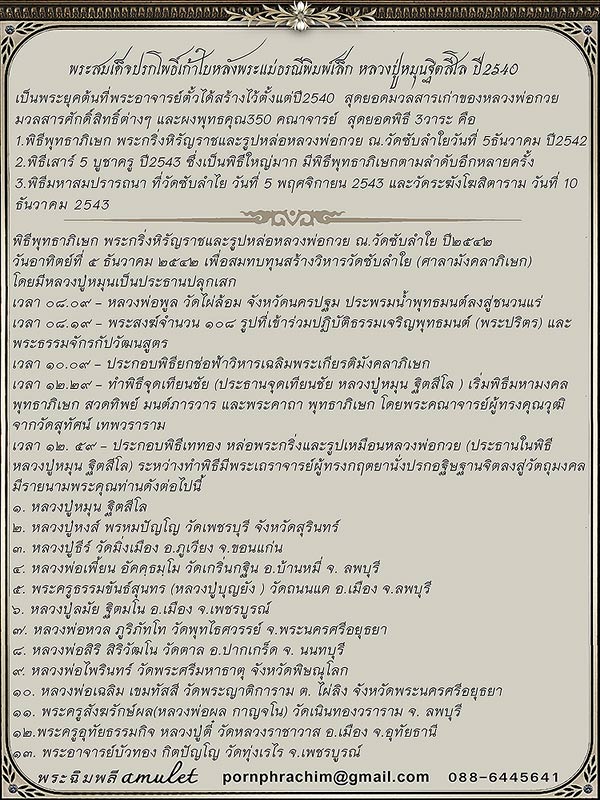 พระสมเด็จปรกโพธิ์เก้าใบหลังพระแม่ธรณีพิมพ์เล็ก หลวงปู่หมุนฐิตสีโล ปี2540
เป็นพระยุคต้นที่พระอาจารย์ตั้วได้สร้างไว้ตั้งแต่ปี2540 สุดยอดมวลสารเก่าของหลวงพ่อกวย
มวลสารศักดิ์สิทธิ์ต่างๆ และผงพุทธคุณ350 คณาจารย์ สุดยอดพิธี 3วาระ คือ
1.พิธีพุทธาภิเษก พระกริ่งหิรัญราชและรูปหล่อหลวงพ่อกวย ณ.วัดซับลำใยวันที่ 5ธันวาคม ปี2542
2.พิธีเสาร์ 5 บูชาครู ปี2543 ซึ่งเป็นพิธีใหญ่มาก มีพิธีพุทธาภิเษกตามลำดับอีกหลายครั้ง
3.พิธีมหาสมปรารถนา ที่วัดซับลำใย วันที่ 5 พฤศจิกายน 2543 และวัดระฆังโฆสิตาราม วันที่ 10
ธันวาคม 2543
พิธีพุทธาภิเษก พระกริ่งหิรัญราชและรูปหล่อหลวงพ่อกวย ณ.วัดซับลำใย ปี๒๕๔๒
วันอาทิตย์ที่ ๕ ธันวาคม ๒๕๔๒ เพื่อสมทบทุนสร้างวิหารวัดซับลำใย (ศาลามังคลาภิเษก)
โดยมีหลวงปู่หมุนเป็นประธานปลุกเสก
เวลา ๐๘.๐๙ – หลวงพ่อพูล วัดไผ่ล้อม จังหวัดนครปฐม ประพรมน้ำพุทธมนต์ลงสู่ชนวนแร่
เวลา ๐๘.๑๙ – พระสงฆ์จำนวน ๑๐๘ รูปที่เข้าร่วมปฏิบัติธรรมเจริญพุทธมนต์ (พระปริตร) และ
พระธรรมจักรกัปวัฒนสูตร
เวลา ๑๐.๐๙ – ประกอบพิธียกช่อฟ้าวิหารเฉลิมพระเกียรติมังคลาภิเษก
เวลา ๑๒.๒๙ – ทำพิธีจุดเทียนชัย (ประธานจุดเทียนชัย หลวงปู่หมุน ฐิตสีโล ) เริ่มพิธีมหามงคล
พุทธาภิเษก สวดทิพย์ มนต์ภารวาร และพระคาถา พุทธาภิเษก โดยพระคณาจารย์ผู้ทรงคุณวุฒิ
จากวัดสุทัศน์ เทพวราราม
เวลา ๑๒. ๕๙ – ประกอบพิธีเททอง หล่อพระกริ่งและรูปเหมือนหลวงพ่อกวย (ประธานในพิธี
หลวงปู่หมุน ฐิตสีโล) ระหว่างทำพิธีมีพระเถราจารย์ผู้ทรงกฤตยานั่งปรกอธิษฐานจิตลงสู่วัตถุมงคล
มีรายนามพระคุณท่านดังต่อไปนี้
๑. หลวงปู่หมุน ฐิตสีโล
๒. หลวงปู่หงส์ พรหมปัญโญ วัดเพชรบุรี จังหวัดสุรินทร์
๓. หลวงปู่ธีร์ วัดมิ่งเมือง อ.ภูเวียง จ.ขอนแก่น
๔. หลวงพ่อเพี้ยน อัคคฺธมฺโม วัดเกริ่นกฐิน อ.บ้านหมี่ จ. ลพบุรี
๕. พระครูธรรมขันธ์สุนทร (หลวงปู่บุญยัง ) วัดถนนแค อ.เมือง จ.ลพบุรี
๖. หลวงปู่ลมัย ฐิตมโน อ.เมือง จ.เพชรบูรณ์
๗. หลวงพ่อหวล ภูริภัทโท วัดพุทไธศวรรย์ จ.พระนครศรีอยุธยา
๘. หลวงพ่อสิริ สิริวัฒโน วัดตาล อ.ปากเกร็ด จ. นนทบุรี
๙. หลวงพ่อไพรินทร์ วัดพระศรีมหาธาตุ จังหวัดพิษณุโลก
๑๐. หลวงพ่อเฉลิม เขมทัสสี วัดพระญาติการาม ต. ไผ่ลิง จังหวัดพระนครศรีอยุธยา
๑๑. พระครูสังฆรักษ์ผล(หลวงพ่อผล กาญจโน) วัดเนินทองวราราม จ. ลพบุรี
๑๒.พระครูอุทัยธรรมกิจ หลวงปู่ตี๋ วัดหลวงราชาวาส อ.เมือง จ.อุทัยธานี
๑๓. พระอาจารย์บัวทอง กิตปัญโญ วัดทุ่งเรไร จ.เพชรบูรณ์
พระฉิมพลี amulet pornphrachim@gmail.com 088-6445641